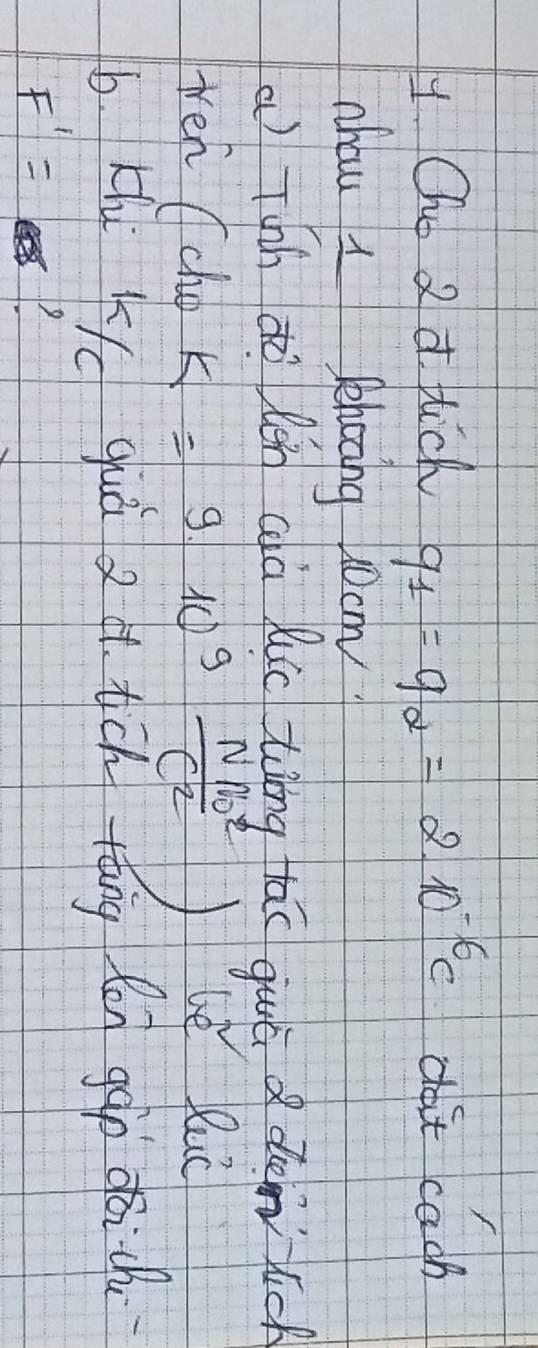 1. Cho 2 đ.tích q₁ = q₂ = 2.10⁻⁶C. đặt cách
nhau 1 khoảng 10cm.
a) Tính độ lớn của lực tương tác giữa 2 điện tích
trên (cho K = 9.10⁹ Nm²/C²) vẽ lực
b. Khi k/c giữa 2 đ.tích tăng lên gấp đôi thì -
F' = ?